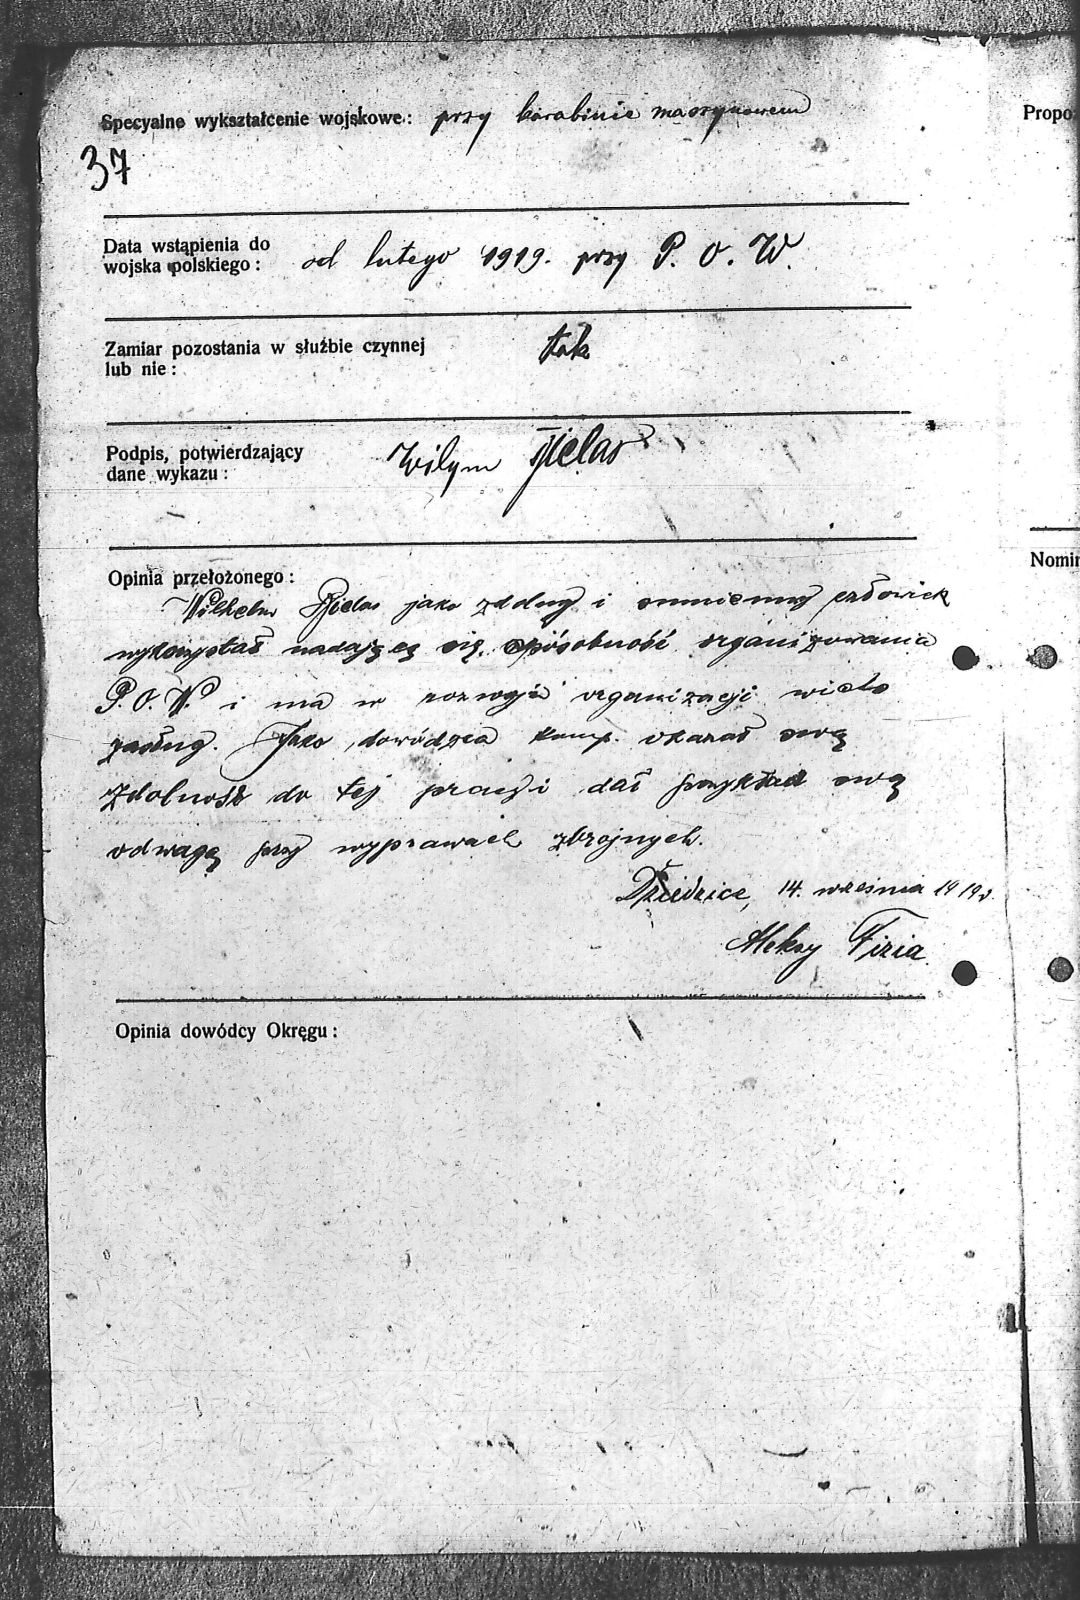 Specyalne wykształcenie wojskowe: przy karabinie maszynowem
Propo
37
Data wstąpienia do
wojska polskiego: od lutego 1919. przy P. O. W.
Zamiar pozostania w służbie czynnej
lub nie: tak
Podpis, potwierdzający
dane wykazu: Wilym Bielas
Nomin
Opinia przełożonego:
Wilhelm Bielas jako zdolny i sumienny człowiek
wykorzystał nadającą się sposobność organizowania
P.O.W. i ma w rozwoju organizacji wiele
zasług. Jako dowódzca komp. okazał swą
zdolność do tej pracy i dał przykład swą
odwagą przy wyprawach zbrojnych.
Dziedzice, 14. września 1919 r.
Aleksy Fizia.
Opinia dowódcy Okręgu: